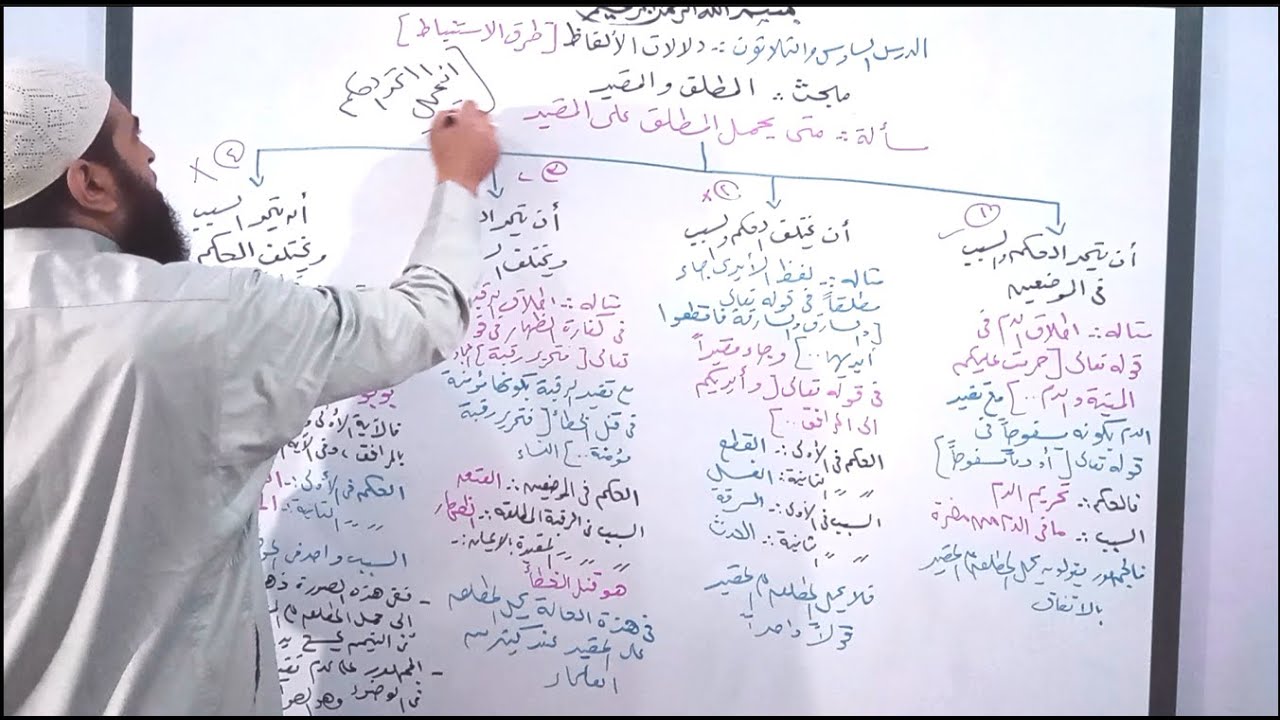 بسم الله الرحمن الرحيم
الدرس السادس والثلاثون :- دلالات الألفاظ [طرق الاستنباط]
مبحث :- المطلق والمقيد
مسألة :- متى يحمل المطلق على المقيد
١
أن يتحد الحكم والسبب
في الموضعين
مثاله :- اطلاق الدم في
قوله تعالى [حرمت عليكم
الميتة والدم ...] مع تقييد
الدم بكونه مسفوحاً في
قوله تعالى [أو دماً مسفوحاً]
فالحكم :- تحريم الدم
السبب :- ما في الدم من مضرة
فالجمهور يقولون يحمل المطلق على المقيد
بالاتفاق
٢ x
أن يختلف الحكم والسبب
مثاله :- لفظ الأيدي جاء
مطلقاً في قوله تعالى
[والسارق والسارقة فاقطعوا
أيديهما ..] وجاء مقيداً
في قوله تعالى [وأيديكم
الى المرافق ..]
الحكم في الأولى :- القطع
" " الثانية :- الغسل
السبب في الأولى :- السرقة
" " ثانية :- الحدث
فلا يحمل المطلق على المقيد
قولاً واحداً
٣
أن يتحد
ويختلف
مثاله :- اطلاق الرقبة
في كفارة الظهار في
تعالى [فتحرير رقبة]
مع تقييد الرقبة بكونها مؤمنة
في قتل الخطأ [فتحرير رقبة
مؤمنة ..] النساء
الحكم في الموضعين :- العتق
السبب في الرقبة المطلقة :- الظهار
" " " المقيدة بالإيمان :-
هو قتل الخطأ
في هذه الحالة يحمل المطلق
على المقيد عند كثير من
العلماء
٤ x
أن يتحد السبب
ويختلف الحكم
فالآية الأولى
بالمرافق ، وفي الآية
الحكم في الأولى :-
" " الثانية :-
السبب واحد في
- ففي هذه الصورة
الى حمل المطلق على
التيمم
- الجمهور على عدم
في الوضوء وهو